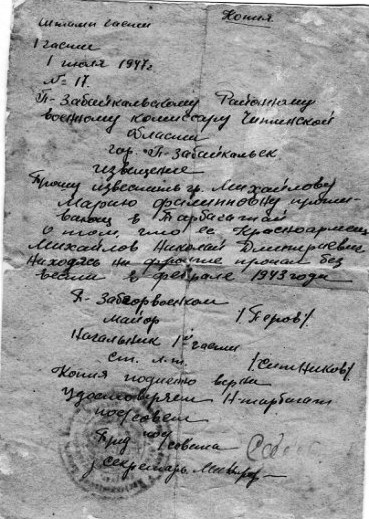 Штамп части Копия
1 части
1 июля 1947г
№ 17.
П-Забайкальскому Районному
военному комиссару Читинской
области
гор. П-Забайкальск
извещение
Прошу известить гр. Михайлову
Марию прожи-
вающ в Тарбагатай
о том, что ее Красноармеец
Михайлов Николай Дмитриевич
находясь на фронте пропал без
вести в феврале 1943 года
П-Забгорвоенком
майор /Перов/
Начальник 1й части
ст. л-т. /Ситников/
Копия верна
удостоверяем Н-тарбагат
пос/совет
Пред пос/совета
секретарь